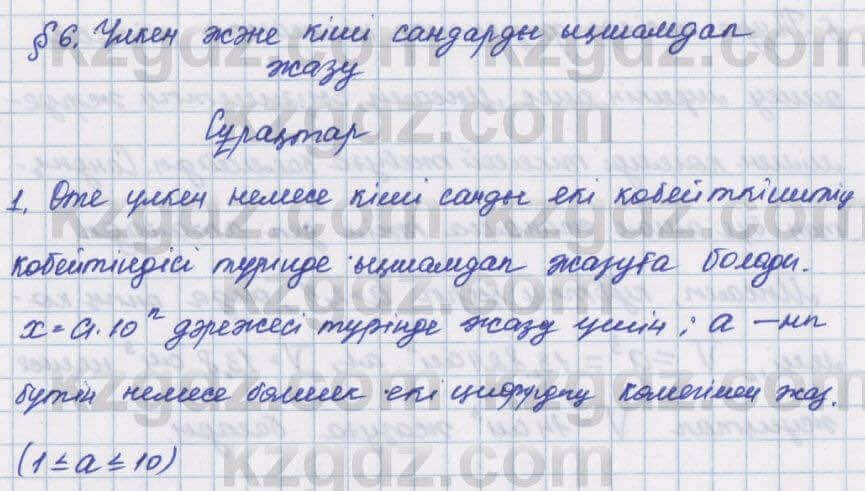 § 6. Үлкен және кіші сандарды ықшамдап
жазу
Сұрақтар
1. Өте үлкен немесе кіші санды екі көбейткіштің
көбейтіндісі түрінде ықшамдап жазуға болады.
x = a · 10ⁿ дәрежесі түрінде жазу үшін; a –
бүтін немесе бөлшек екі цифрдың көмегімен жаз.
(1 ≤ a ≤ 10)
kzgdz.com